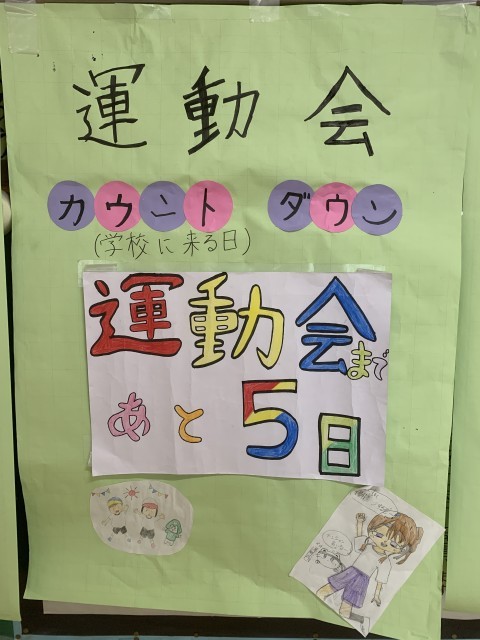 運動会
カウント ダウン
(学校に来る日)
運動会まで
あと5日